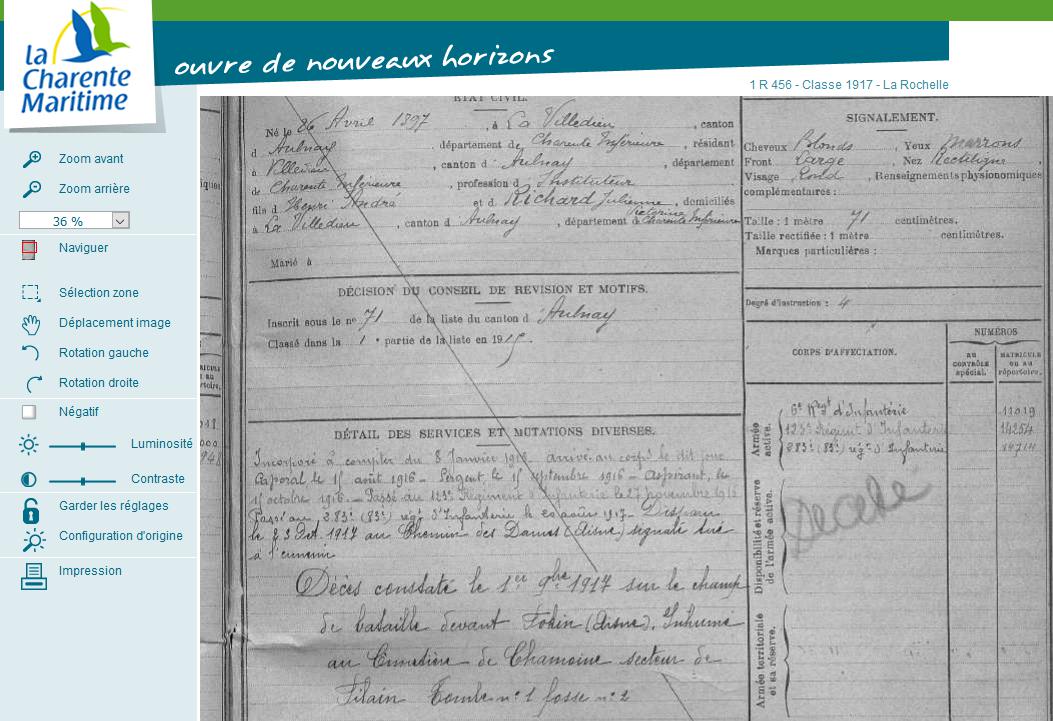 la
Charente
Maritime
ouvre de nouveaux horizons
1 R 456 - Classe 1917 - La Rochelle
Zoom avant
Zoom arrière
36 %
Naviguer
Sélection zone
Déplacement image
Rotation gauche
Rotation droite
Négatif
Luminosité
Contraste
Garder les réglages
Configuration d'origine
Impression
ETAT CIVIL.
Né le 26 Avril 1897, à La Villedieu, canton
d Aulnay, département de Charente Inférieure, résidant
à Villedieu, canton d Aulnay, département
de Charente Inférieure, profession d Instituteur
fils d Henri André et d Richard Julienne, domiciliés
à La Villedieu, canton d Aulnay, département d Charente Inférieure
Marié à
DÉCISION DU CONSEIL DE REVISION ET MOTIFS.
Inscrit sous le no 71 de la liste du canton d Aulnay
Classé dans la 1e partie de la liste en 191
DÉTAIL DES SERVICES ET MUTATIONS DIVERSES.
Incorporé à compter du 8 Janvier 1916, arrivé au corps le dit jour
Caporal le 1er août 1916 - Sergent, le 1er septembre 1916 - Aspirant, le
1er octobre 1916. - Passé au 123e Régiment d'Infanterie le 27 novembre 1916
Passé au 283e (83e) rég. d'Infanterie le août 1917. Disparu
le 23 Oct. 1917 au Chemin des Dames (Aisne) signalé tué
à l'ennemi
Décès constaté le 1er 9bre 1917 sur le champ
de bataille devant (Aisne). Inhumé
au Cimetière de secteur de
Filain Tombe no 1 fosse no 2
SIGNALEMENT.
Cheveux Blonds, Yeux Marrons
Front Large, Nez Rectiligne
Visage Rond, Renseignements physionomiques
complémentaires :
Taille : 1 mètre 71 centimètres.
Taille rectifiée : 1 mètre centimètres.
Marques particulières :
Degré d'instruction : 4
CORPS D'AFFECTATION.
NUMÉROS
AU
CONTRÔLE
spécial.
MATRICULE
ou au
répertoire.
Armée
active.
6e Régt d'Infanterie 11019
123e Régiment d'Infanterie 14254
283e (83e) rég. d'Infanterie
Disponibilité et réserve
de l'armée active.
Décédé
Armée territoriale
et sa réserve.